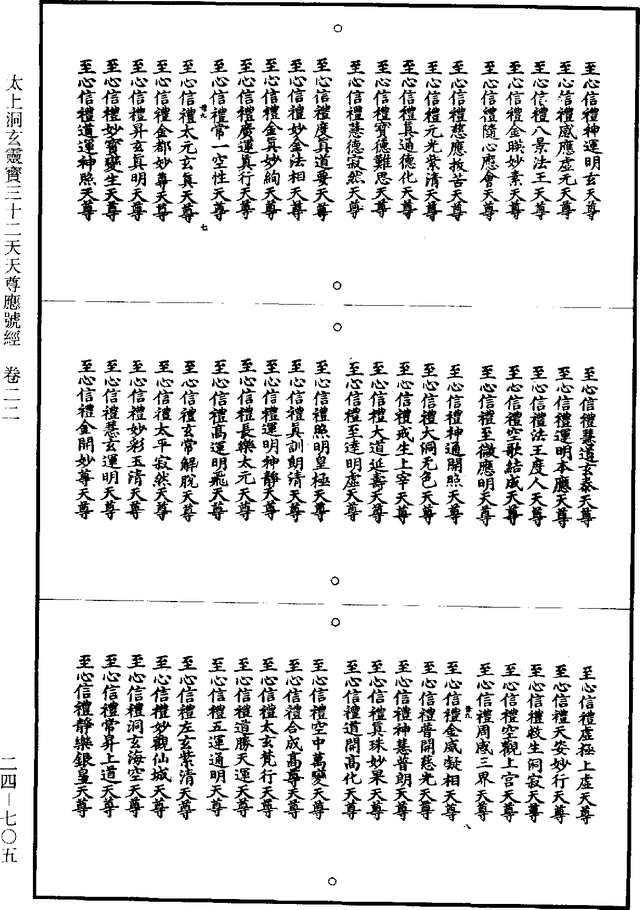 至心信禮神運明玄天尊
至心信禮感應虛元天尊
至心信禮八景法王天尊
至心信禮金暎妙素天尊
至心信禮隨心應會天尊
至心信禮慈應拔苦天尊
至心信禮元光紫清天尊
至心信禮真通德化天尊
至心信禮寶德難思天尊
至心信禮慧德寂然天尊
至心信禮度真道要天尊
至心信禮妙金法相天尊
至心信禮金真妙絢天尊
至心信禮廣運真行天尊
至心信禮常一空性天尊
廿九
七
至心信禮太元玄真天尊
至心信禮金都妙尊天尊
至心信禮昇玄真明天尊
至心信禮妙寶變生天尊
至心信禮道運神照天尊
至心信禮慧道玄泰天尊
至心信禮運明本應天尊
至心信禮法王度人天尊
至心信禮空歌結成天尊
至心信禮至微應明天尊
至心信禮神通開照天尊
至心信禮大洞无色天尊
至心信禮戒生上宰天尊
至心信禮大道延壽天尊
至心信禮至達明虛天尊
至心信禮照明皇極天尊
至心信禮真訓朗清天尊
至心信禮運明神靜天尊
至心信禮長樂太元天尊
至心信禮高運明飛天尊
至心信禮玄常解脫天尊
至心信禮太平寂然天尊
至心信禮妙彩五清天尊
至心信禮慧玄運明天尊
至心信禮金開妙尊天尊
至心信禮虛極上虛天尊
至心信禮天安妙行天尊
至心信禮救生洞寂天尊
至心信禮空觀上宮天尊
至心信禮周感三界天尊
廿九
八
至心信禮金威凝相天尊
至心信禮普開慈光天尊
至心信禮神慧普朗天尊
至心信禮真珠妙果天尊
至心信禮道開高化天尊
至心信禮空中萬變天尊
至心信禮合成高尊天尊
至心信禮太玄梵行天尊
至心信禮道勝天運天尊
至心信禮五運通明天尊
至心信禮左玄紫清天尊
至心信禮妙觀仙城天尊
至心信禮洞玄海空天尊
至心信禮常昇上道天尊
至心信禮靜樂銀皇天尊
太上洞玄靈寶三十二天天尊應號經 卷二二
二四－七〇五